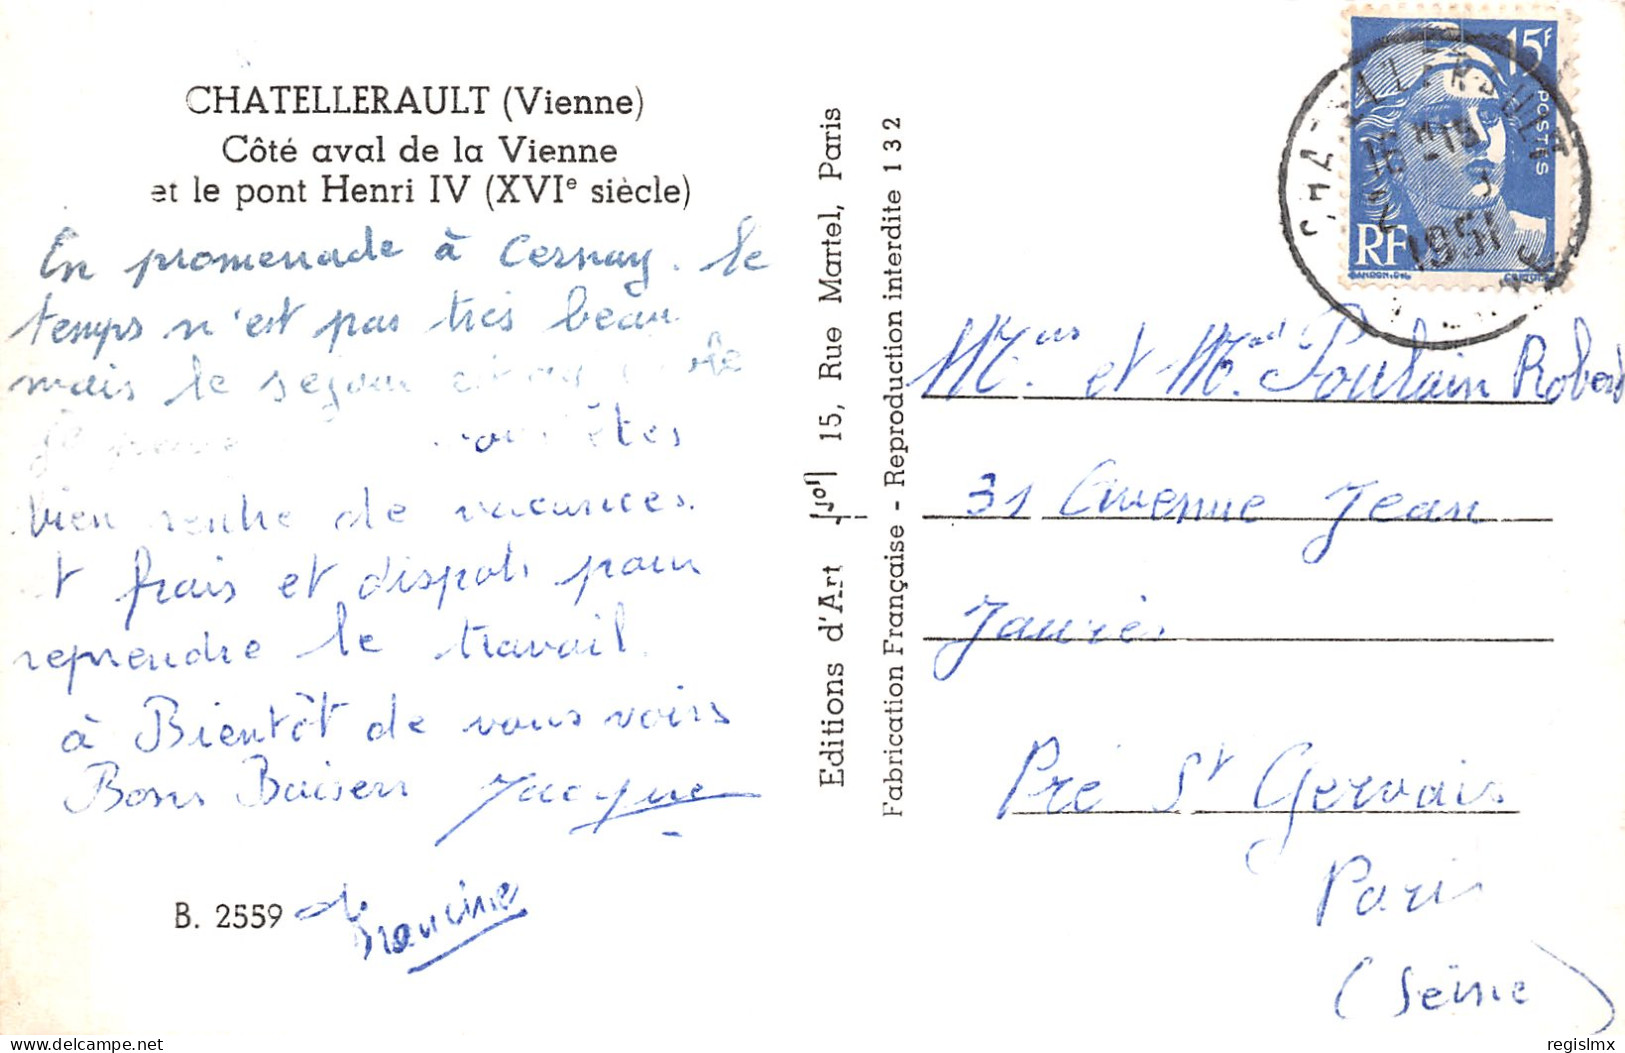 CHATELLERAULT (Vienne)
Côté aval de la Vienne
et le pont Henri IV (XVIe siècle)
En promenade à Cernay. le
temps n'est pas très beau
mais le sejour
Je pense vous êtes
bien rentre de vacances.
et frais et dispots pour
reprendre le travail.
à Bientôt de vous voirs
Bons Baisers Jacque
Francine
B. 2559
Editions d'Art 15, Rue Martel, Paris
Fabrication Française - Reproduction interdite 132
15F
POSTES
RF
GANDON
CHATELLERAULT
16 -15
1951
VIENNE
Mr. et Mme. Poulain Robert
31 Avenue Jean
Jaurès
Pré St Gervais
Paris
(Seine)
regislmx